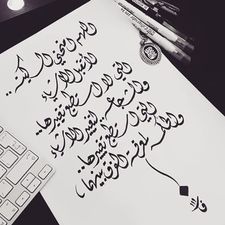 اللهم امنحني السكينة..
لأتقبل الأشياء
التي لا أستطيع تغييرها..
والشجاعة لتغيير الأشياء
التي أستطيع تغييرها..
والحكمة لمعرفة الفرق بينهما